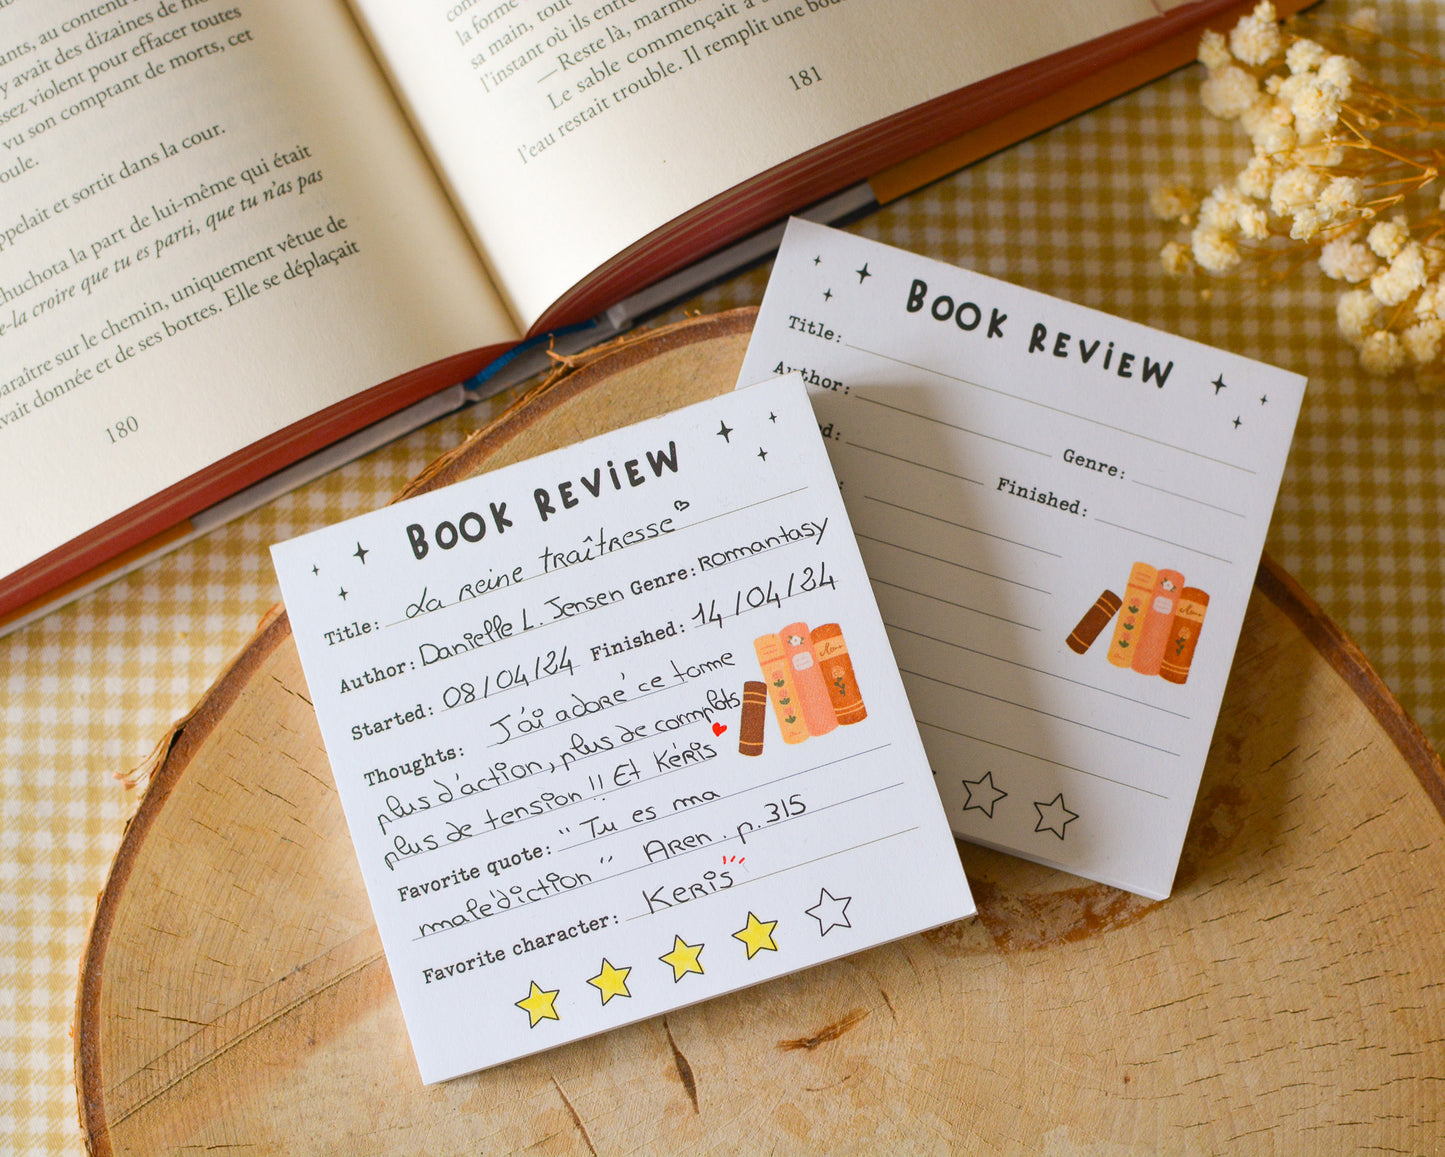 ants, au conten
y avait des dizaines de mo
ssez violent pour effacer toutes
vu son comptant de morts, cet
oule.
ppelait et sortit dans la cour.
huchota la part de lui-même qui était
e-la croire que tu es parti, que tu n'as pas
araître sur le chemin, uniquement vêtue de
vait donnée et de ses bottes. Elle se déplaçait
180
la forme
sa main, tout
l'instant où ils entre
— Reste là, marmo
Le sable commençait à s
l'eau restait trouble. Il remplit une bou
181
BOOK REViEW
Title: La reine traîtresse
Author: Danielle L. Jensen Genre: Romantasy
Started: 08/04/24 Finished: 14/04/24
Thoughts: J'ai adoré ce tome
plus d'action, plus de complots
plus de tension !! Et Kéris
Favorite quote: "Tu es ma
malédiction" Aren. p.315
Favorite character: Keris
BOOK REViEW
Title:
Author:
Genre:
ed:
Finished:
: